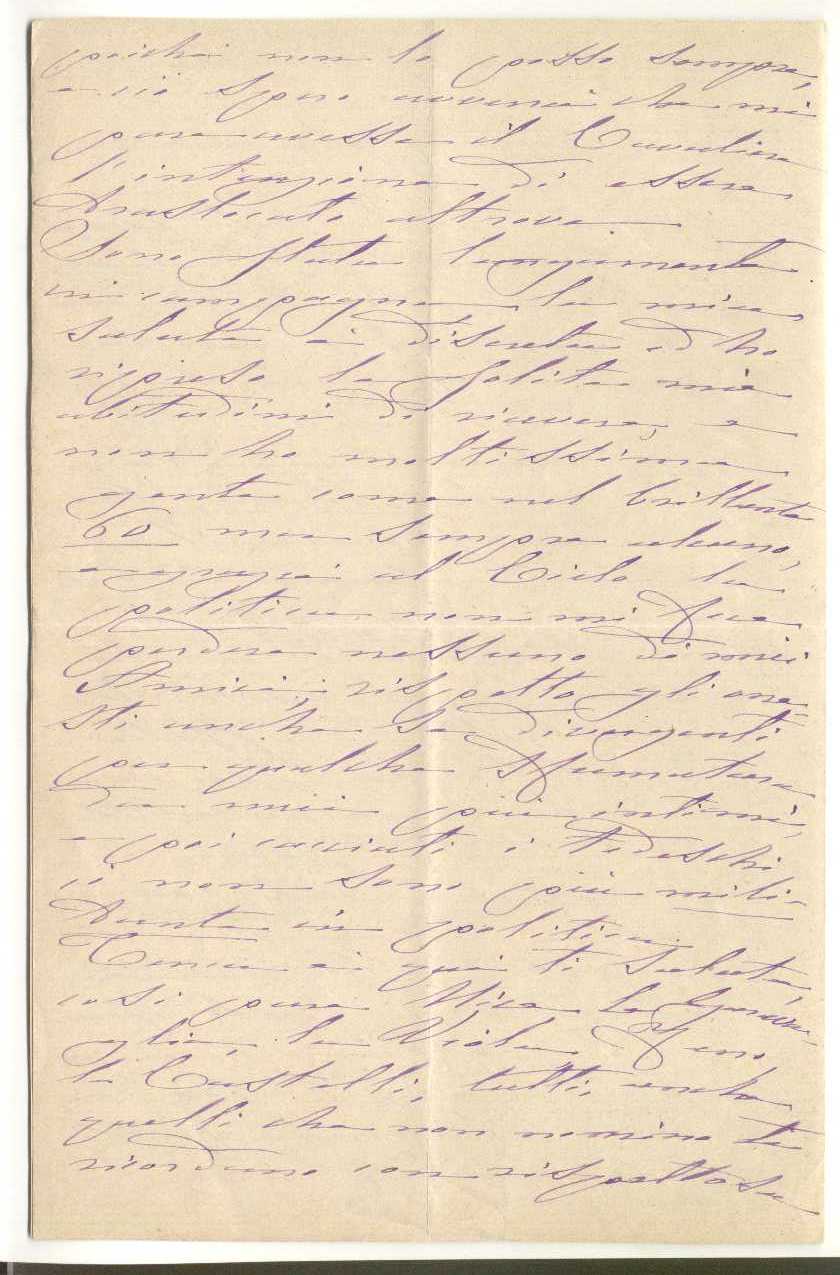 poichè non lo posso sempre,
e ciò spero avverrà che mi
pare avesse il Cavaliere
l'intenzione di essere
traslocato altrove
Sono stata lungamente
in campagna, la mia
salute è discreta ed ho
ripreso le solite mie
abitudini di ricevere, e
non ho moltissima
gente come nel brillante
60 ma sempre alcuno,
e grazie al Cielo la
politica non mi fece
perdere nessuno di miei
Amici; rispetto gli one-
sti anche se divergenti
per qualche sfumatura
da miei più intimi,
e poi cacciati i tedeschi
io non sono più mili-
tante in politica.
è qui ti saluta
così pure la
glia, la Viola,
la Castelli, tutti, anche
quelli che non nomino te
ricordano con rispettosa